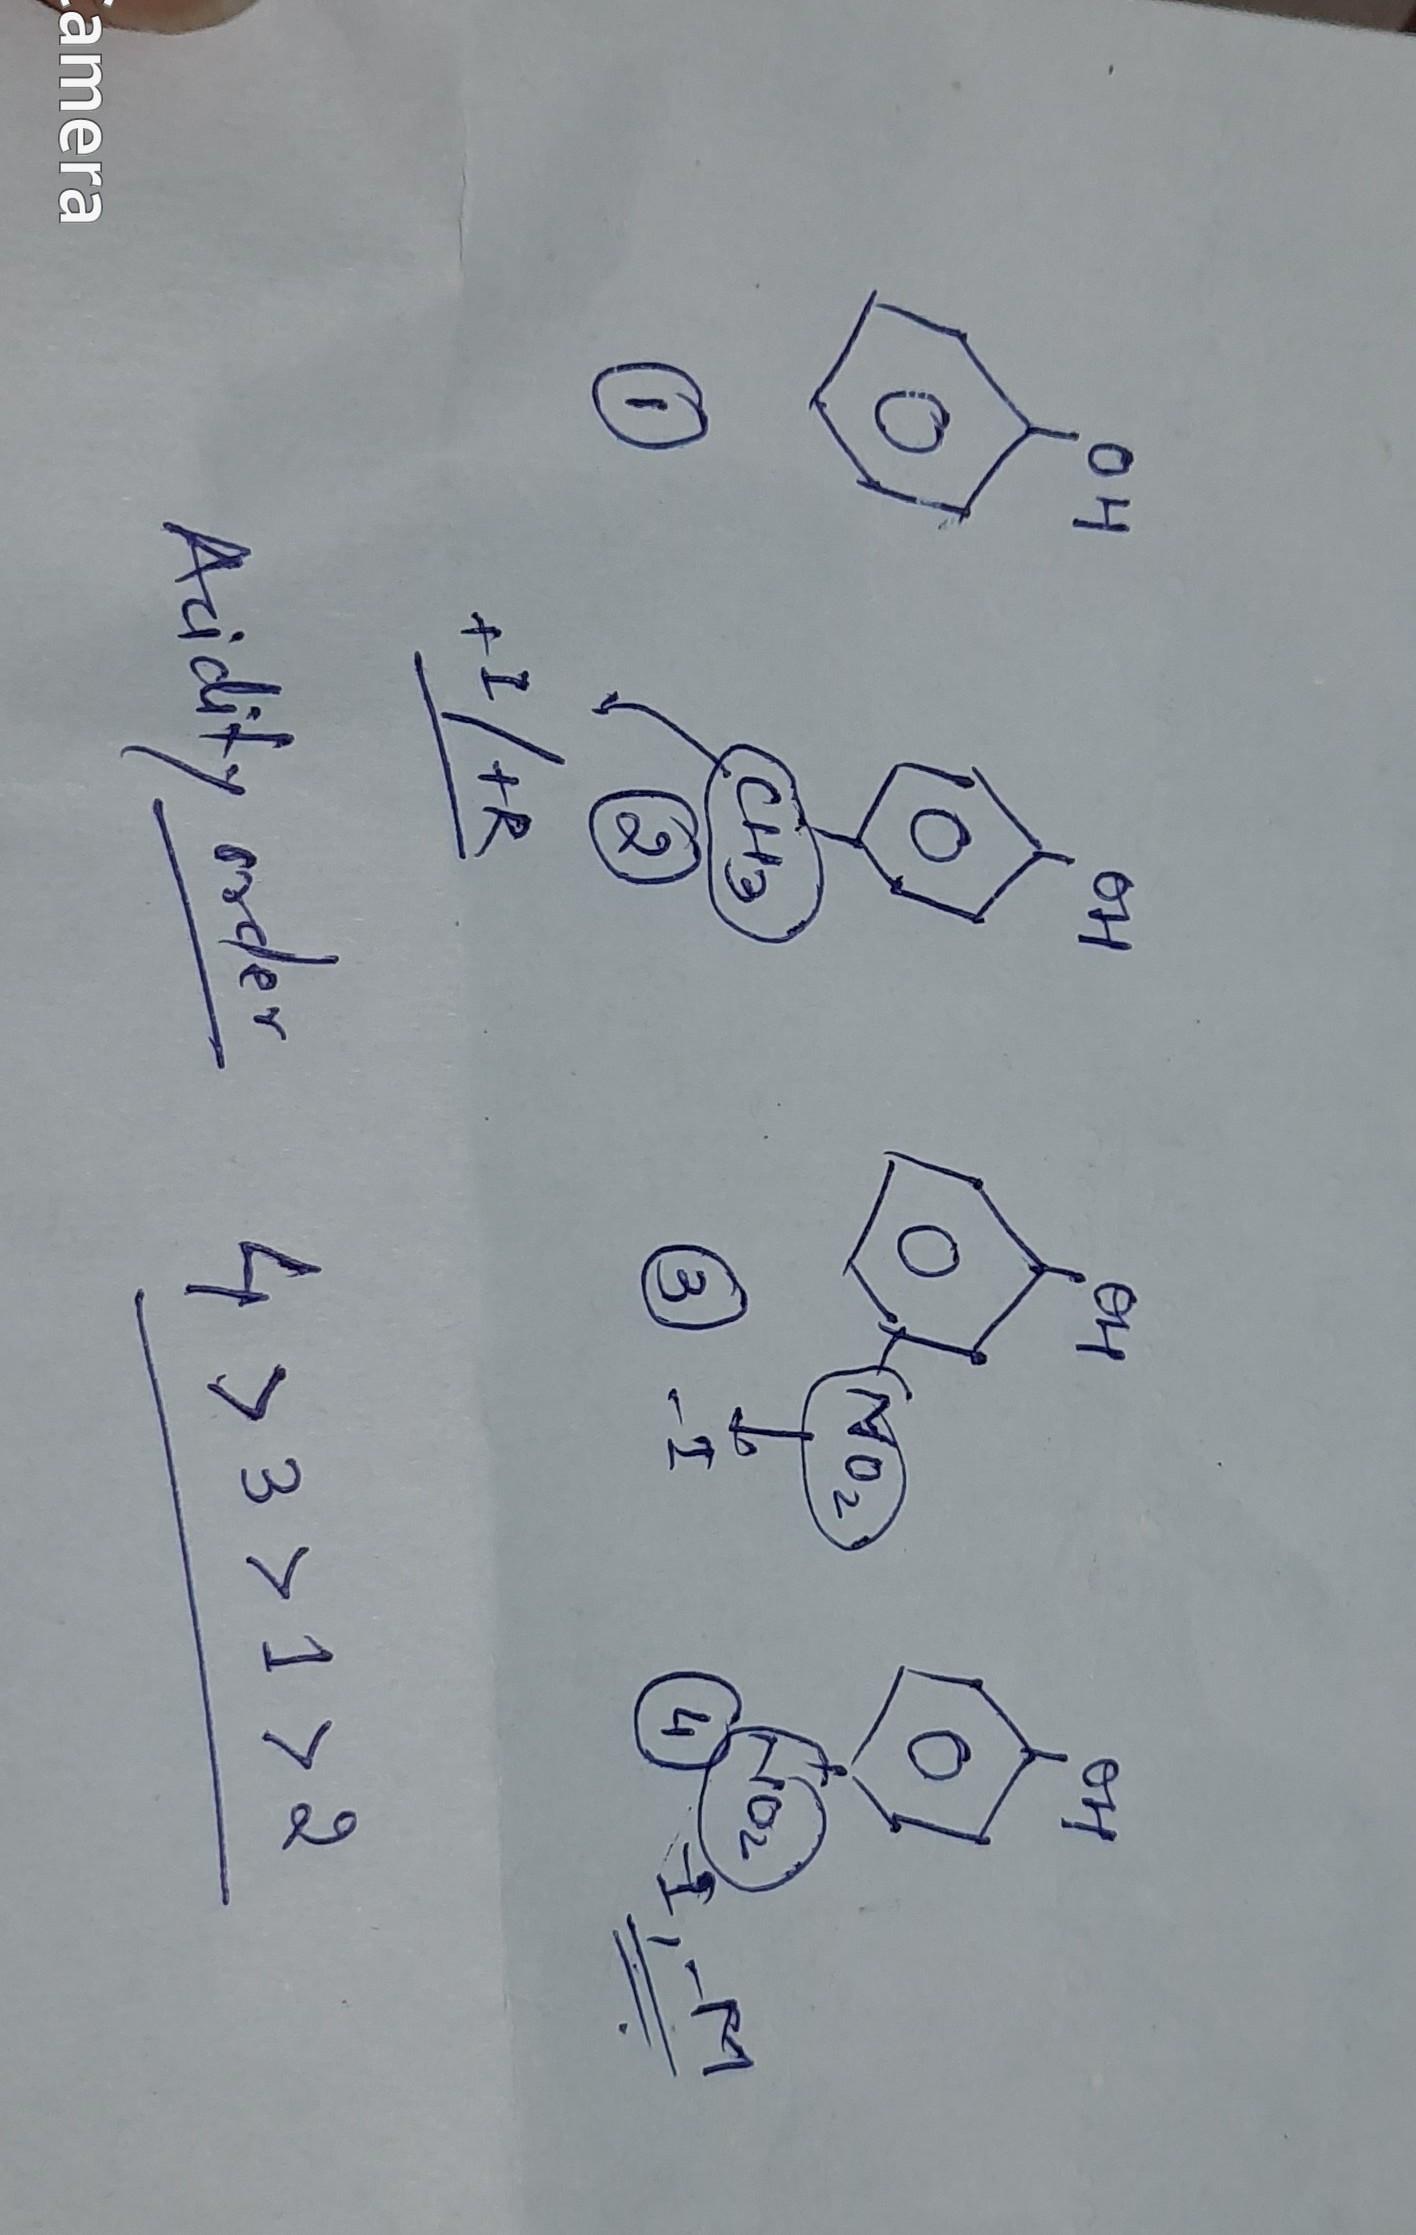 OH OH OH OH
NO2
CH3 NO2
1 2 3 4
-I -I, -M
+I/+R
Acidity order 4 > 3 > 1 > 2
Camera